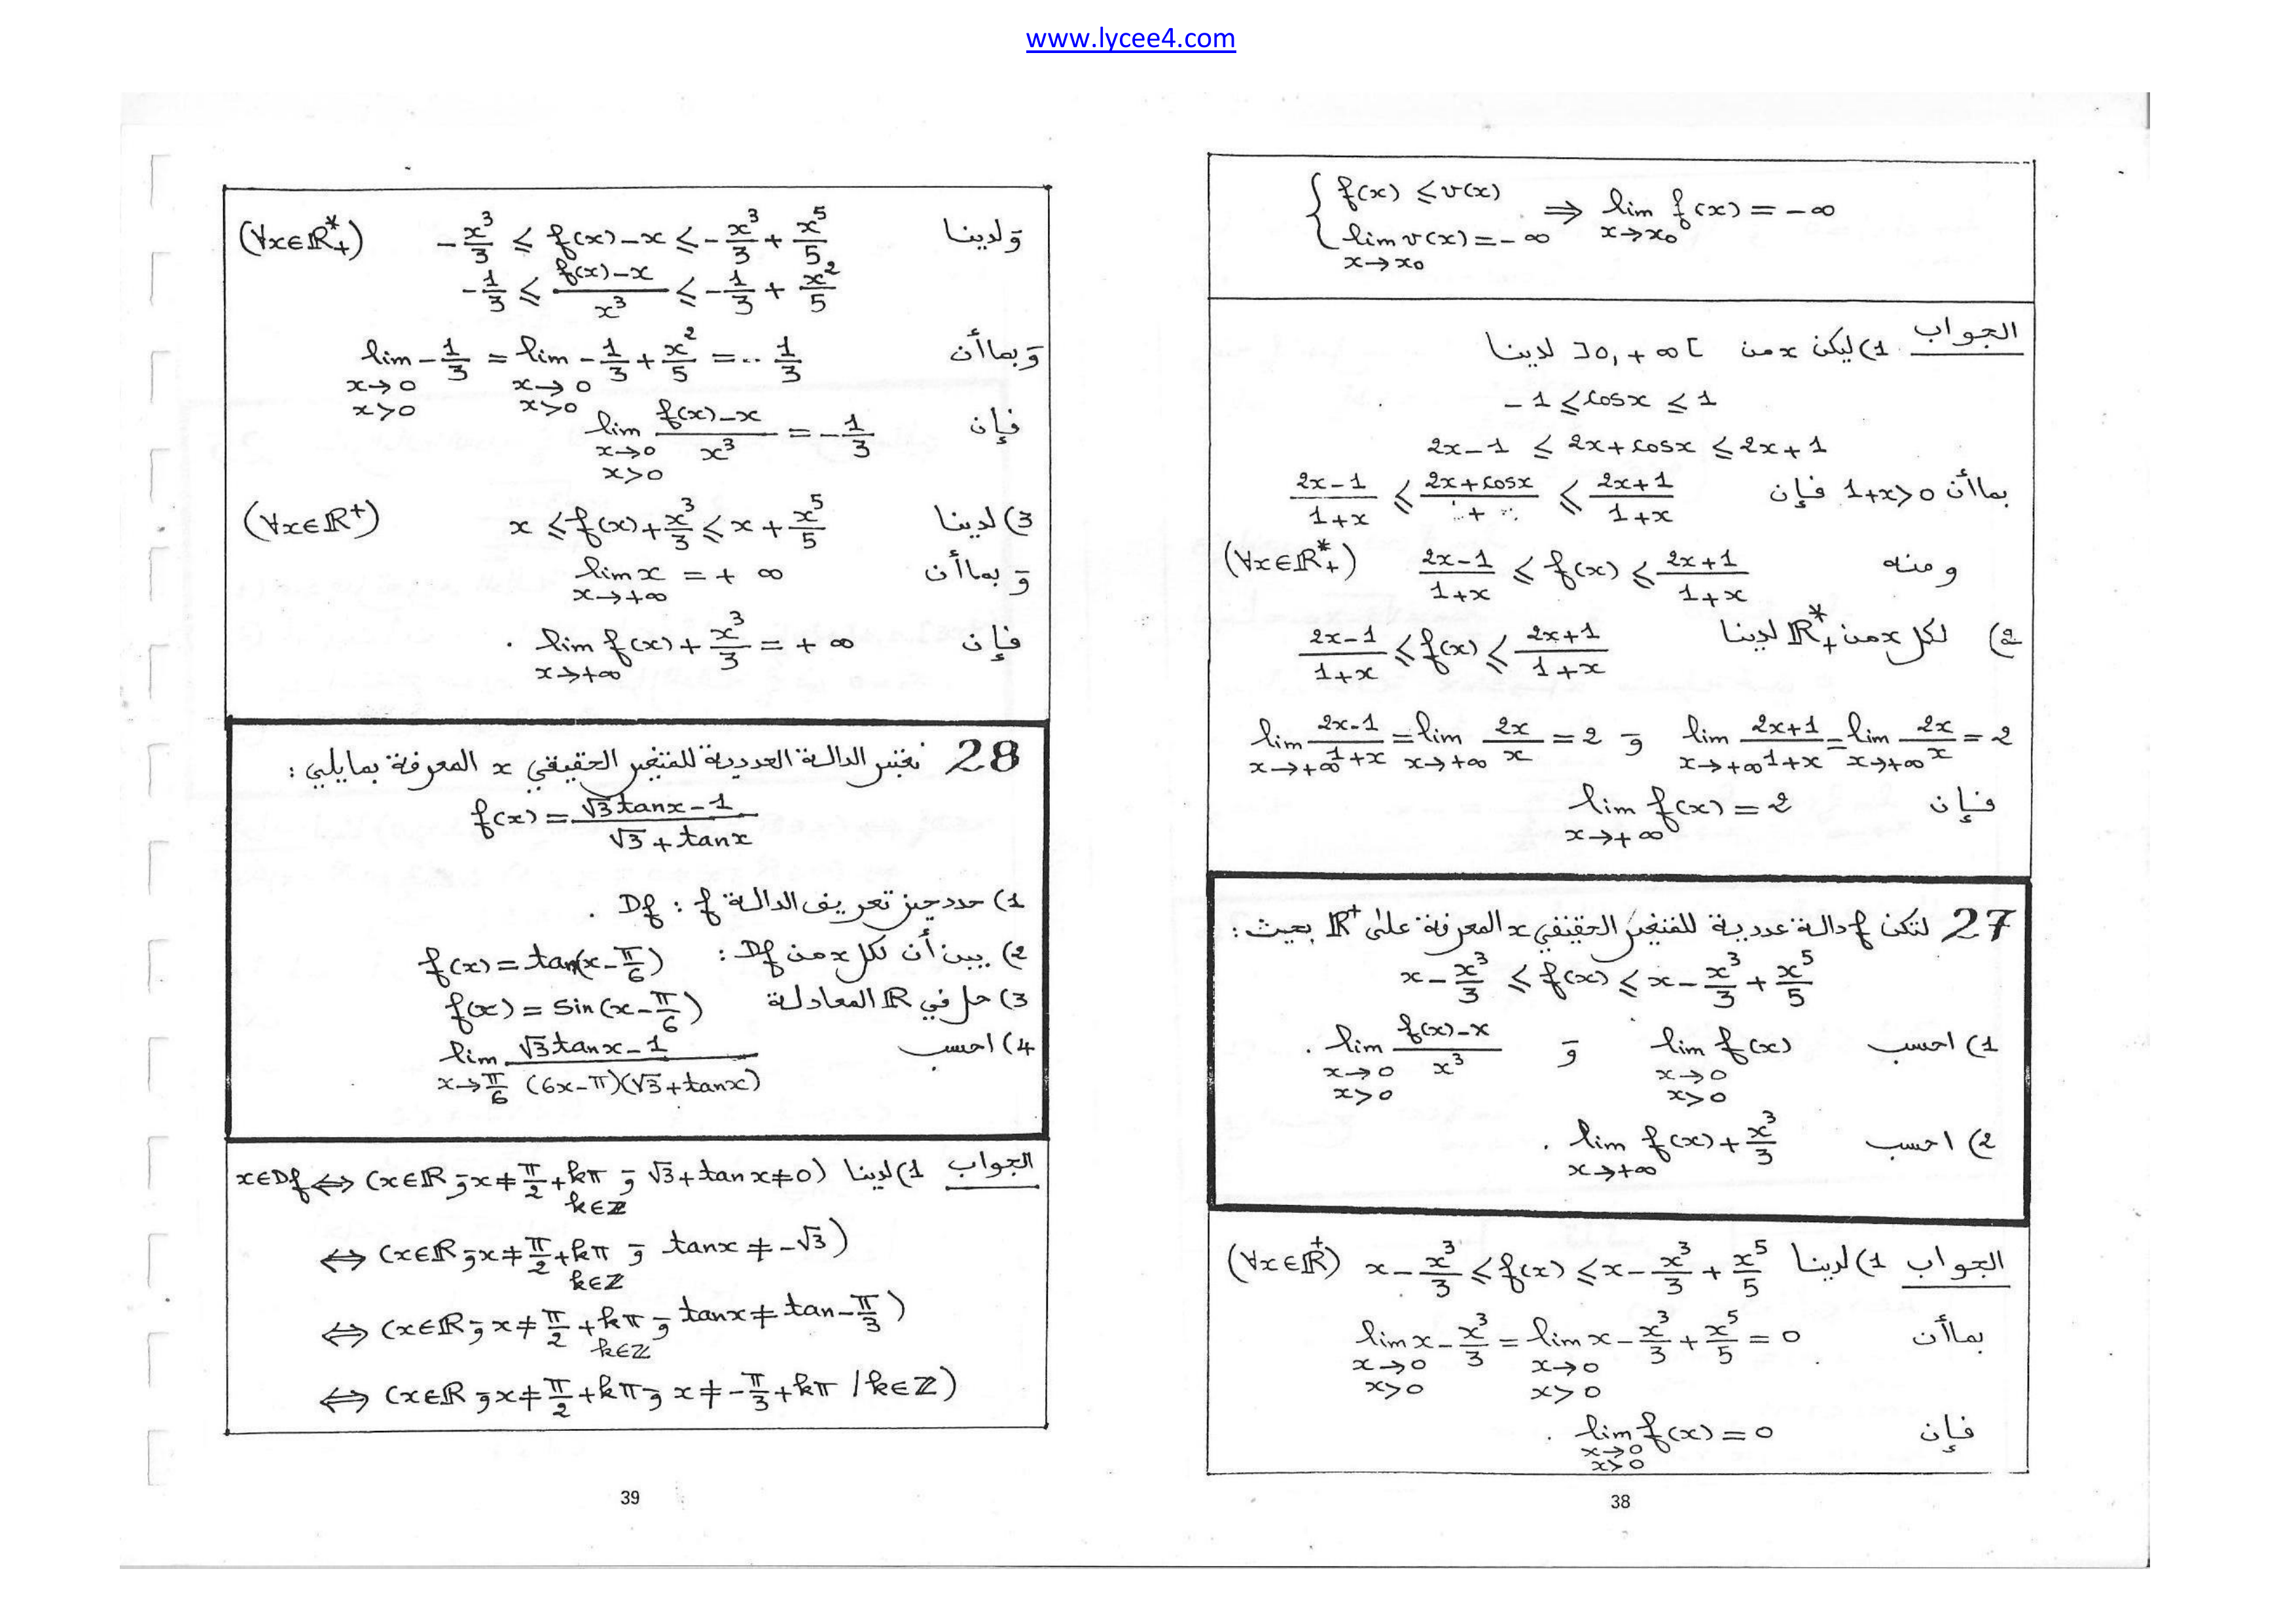 www.lycee4.com
{ f(x) ≤ v(x) , lim_{x→x₀} v(x) = -∞ ⇒ lim_{x→x₀} f(x) = -∞
الجواب 1) ليكن x من ]0, +∞[ لدينا
-1 ≤ cosx ≤ 1
2x-1 ≤ 2x+cosx ≤ 2x+1
بما أن 1+x>0 فإن (2x-1)/(1+x) ≤ (2x+cosx)/( + ) ≤ (2x+1)/(1+x)
ومنه (2x-1)/(1+x) ≤ f(x) ≤ (2x+1)/(1+x) (∀x∈ℝ*₊)
2) لكل x من ℝ*₊ لدينا (2x-1)/(1+x) ≤ f(x) ≤ (2x+1)/(1+x)
lim_{x→+∞} (2x-1)/(1+x) = lim_{x→+∞} 2x/x = 2 و lim_{x→+∞} (2x+1)/(1+x) = lim_{x→+∞} 2x/x = 2
فإن lim_{x→+∞} f(x) = 2
27 لتكن f دالة عددية للمتغير الحقيقي x المعرفة على ℝ⁺ بحيث :
x - x³/3 ≤ f(x) ≤ x - x³/3 + x⁵/5
1) احسب lim_{x→0, x>0} f(x) و lim_{x→0, x>0} (f(x)-x)/x³ .
2) احسب lim_{x→+∞} f(x) + x³/3 .
الجواب 1) لدينا x - x³/3 ≤ f(x) ≤ x - x³/3 + x⁵/5 (∀x∈ℝ⁺)
بما أن lim_{x→0, x>0} x - x³/3 = lim_{x→0, x>0} x - x³/3 + x⁵/5 = 0
فإن lim_{x→0, x>0} f(x) = 0 .
38
ولدينا -x³/3 ≤ f(x)-x ≤ -x³/3 + x⁵/5 (∀x∈ℝ*₊)
-1/3 ≤ (f(x)-x)/x³ ≤ -1/3 + x²/5
وبما أن lim_{x→0, x>0} -1/3 = lim_{x→0, x>0} -1/3 + x²/5 = -1/3
فإن lim_{x→0, x>0} (f(x)-x)/x³ = -1/3
3) لدينا x ≤ f(x) + x³/3 ≤ x + x⁵/5 (∀x∈ℝ⁺)
وبما أن lim_{x→+∞} x = +∞
فإن lim_{x→+∞} f(x) + x³/3 = +∞ .
28 نعتبر الدالة العددية للمتغير الحقيقي x المعرفة بمايلي :
f(x) = (√3 tanx - 1)/(√3 + tanx)
1) حدد حيز تعريف الدالة f : Df .
2) بين أن لكل x من Df : f(x) = tan(x - π/6)
3) حل في ℝ المعادلة f(x) = sin(x - π/6)
4) احسب lim_{x→π/6} (√3 tanx - 1)/((6x-π)(√3+tanx))
الجواب 1) لدينا x∈Df ⇔ (x∈ℝ و x≠π/2+kπ k∈ℤ و √3+tanx≠0)
⇔ (x∈ℝ و x≠π/2+kπ k∈ℤ و tanx≠-√3)
⇔ (x∈ℝ و x≠π/2+kπ k∈ℤ و tanx≠tan-π/3)
⇔ (x∈ℝ و x≠π/2+kπ و x≠-π/3+kπ / k∈ℤ)
39